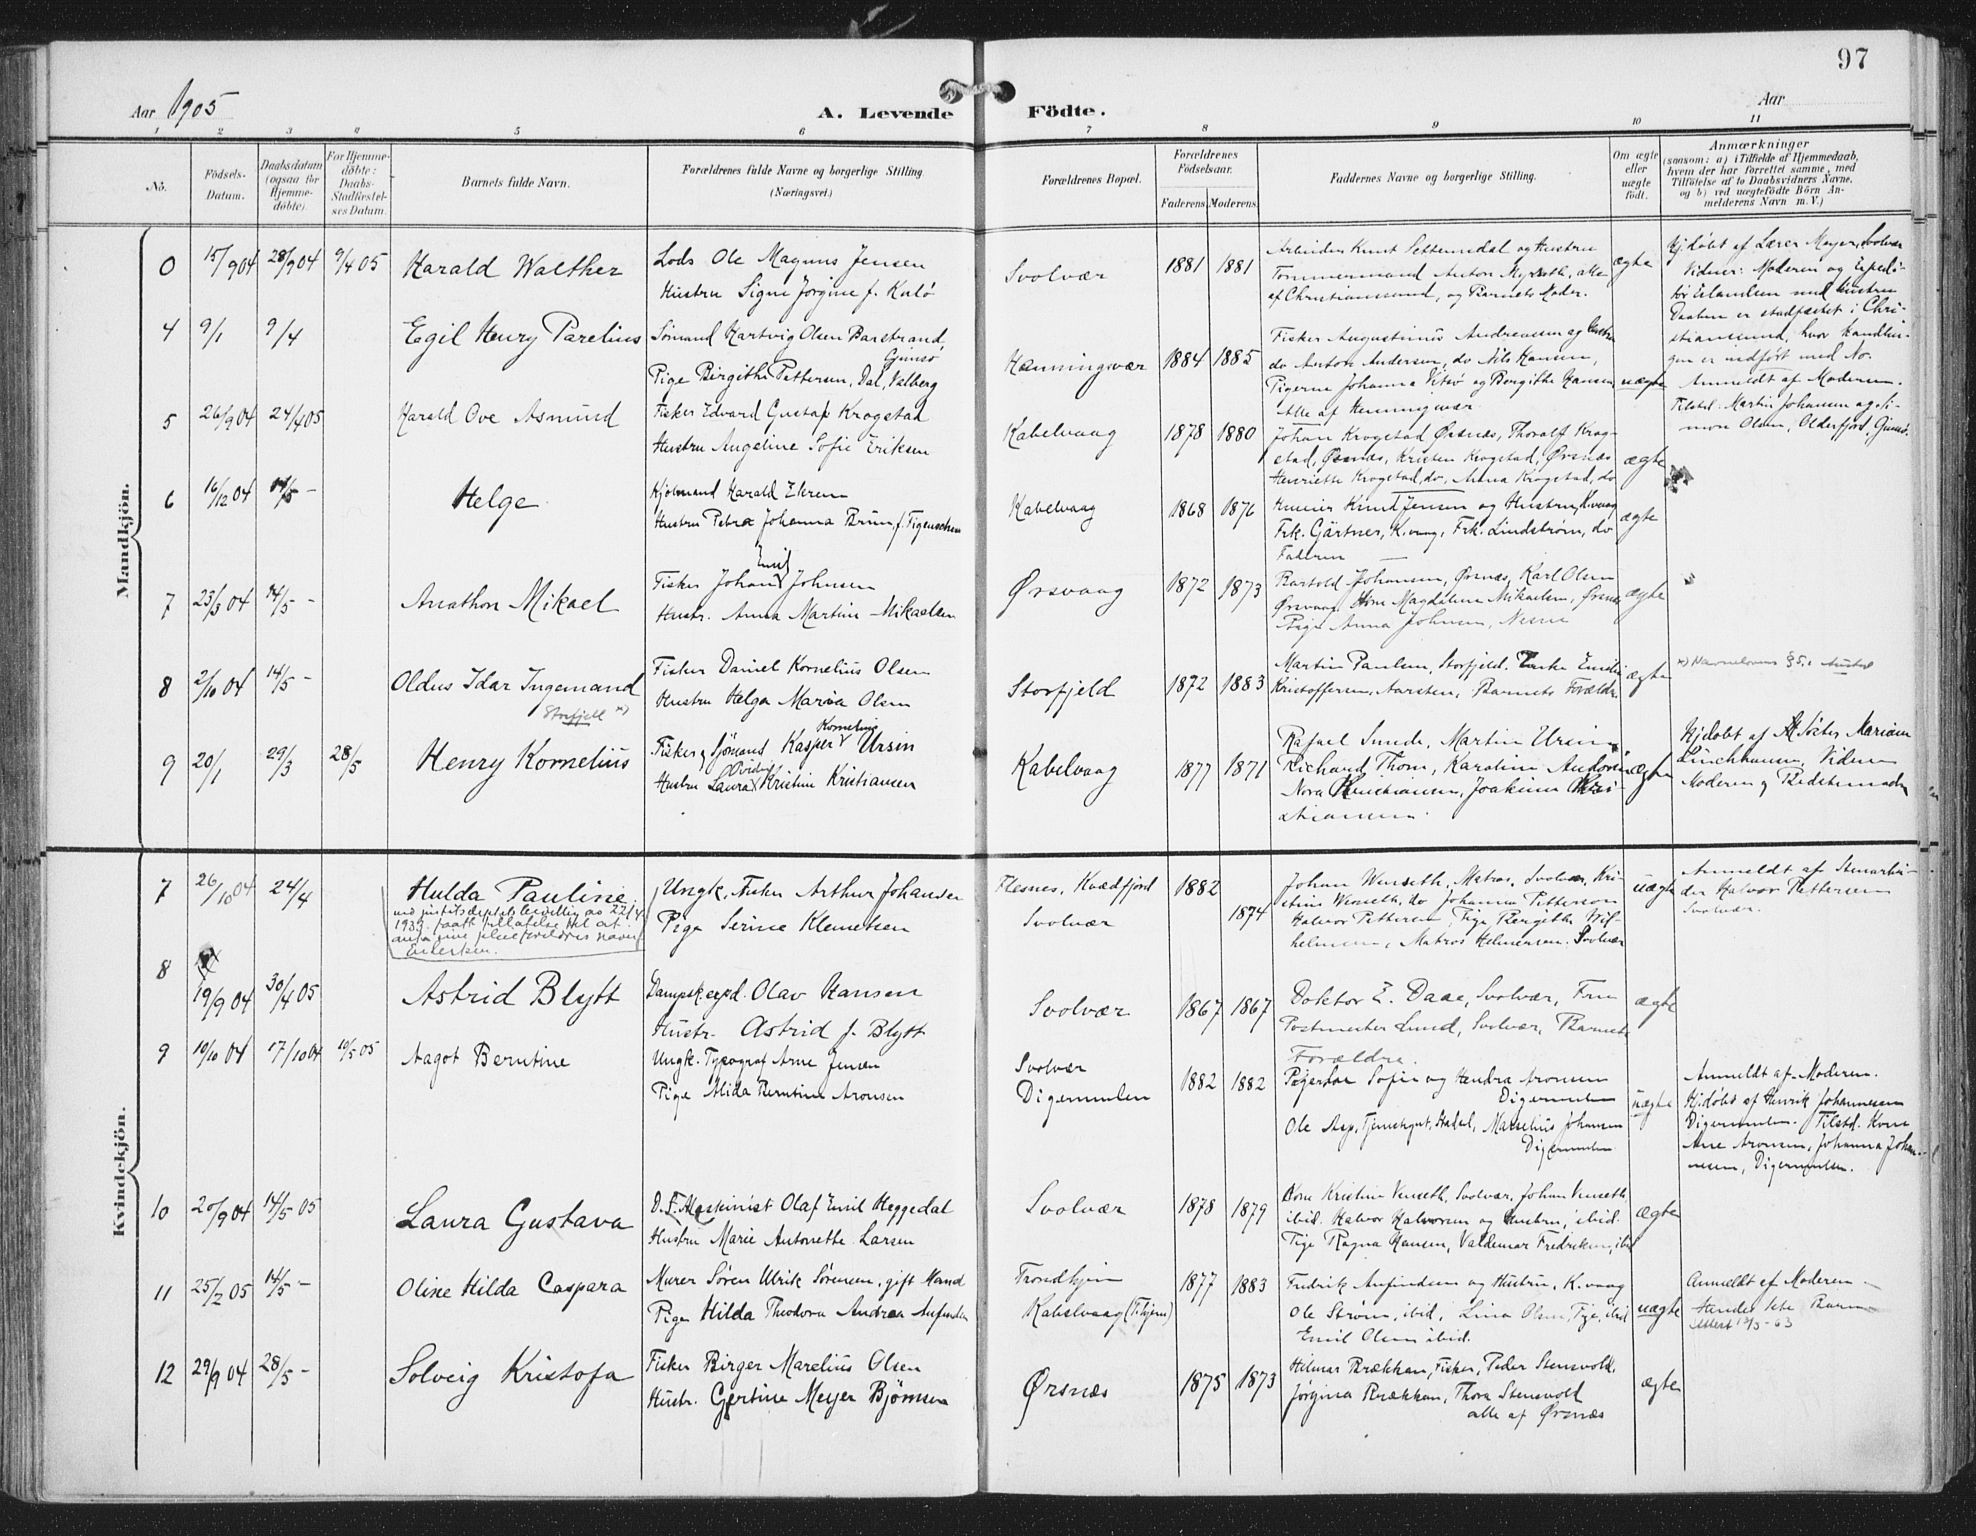 97
Aar 1905
A. Levende Födte.
Aar
1 2 3 4 5 6 7 8 9 10 11
No.
Födsels-Datum.
Daabsdatum (ogsaa for Hjemme-döbte).
For Hjemme-döbte: Daabs-Stadfæstel-ses Datum.
Barnets fulde Navn.
Forældrenes fulde Navne og borgerlige Stilling. (Næringsvei.)
Forældrenes Bopæl.
Forældrenes Födselsaar.
Faderens. Moderens.
Faddernes Navne og borgerlige Stilling.
Om ægte eller uægte födt.
Anmærkninger
(saasom: a) i Tilfælde af Hjemmedaab, hvem der har forrettet samme, med Tilföielse af to Daabsvidners Navne, og b) ved uægtefödte Börn An-melderens Navn m. V.)
Mandkjön.
0 15/9 04 28/9 04 9/4 05 Harald Walther
Lods Ole Magnus Jensen
Hustru Signe Jørgine f. Kulö
Svolvær 1881 1881
Arbeider Knut Settemsdal og Hustru
Tømmermand Anton Myrseth, alle
af Christianssund, og Barnets Moder.
ægte
Hjdøbt af Lærer Meyer, Svolvær
Vidner: Moderen og Expedi-
tør Erlandsen med Hustru
Daaben er stadfæstet i Chri-
stianssund, hvor Handlin-
gen er indført med No.
4 9/1 9/4 Egil Henry Parelius
Sömand Hartvig Olsen Barstrand,
Gimsö
Pige Birgithe Pettersen, Dal, Valberg
Henningsvær 1884 1885
Fisker Augustinus Andreassen og Hustru
do Anton Andersen, do Nils Hansen,
Pigerne Johanna Vitsö og Borgithe Hansen
Alle af Henningsvær
uægte
Anmeldt af Moderen.
Tilsted: Martin Johansen og Si-
mon Olsen, Olderfjord, Gimsö.
5 26/9 04 24/4 05 Harald Ove Asmund
Fisker Edvard Gustaf Krogstad
Hustru Angeline Sofie Eriksen
Kabelvaag 1878 1880
Johan Krogstad Ørsnes, Thoralf Krog-
stad, Ørsnes, Kristen Krogstad, Ørsnæs
Henriette Krogstad, do, Anna Krogstad, do
ægte
6 16/12 04 14/5 – Helge
Hjulmand Harald Ehren
Hustru Petra Johanna Bruun f. Figenschou
Kabelvaag 1868 1876
Knut Jensen og Hustru, K.vaag
Frk. Gärtner, K.vaag, Frk. Lindstrøm, do
Faderen
ægte
7 23/3 04 14/5 – Anathon Mikael
Emil
Fisker Johan Johnsen
Hustr. Anna Martine Mikaelsen
Ørsvaag 1872 1873
Bartold Johansen, Ørsnæs, Karl Olsen
Ørsvaag, Kone Magdalena Mikaelsen, Ørsnes
Pige Anna Johnsen,
ægte
8 2/10 04 14/5 – Oldus Idar Ingemand
Storfjell x)
Fisker Daniel Kornelius Olsen
Hustru Helga Maria Olsen
Storfjeld 1872 1883
Martin Paulsen, Storfjeld. Enke Emilie
Kristoffersen, Aarsten, Barnets Forældre
ægte
x) Navnelovens § 5.
9 20/1 29/3 28/5 Henry Kornelius
Kornelius
Fisker og Sjömand Kasper Ursin
Ovidia
Hustru Laura Kristine Kristiansen
Kabelvaag 1877 1871
Rafael Sunde, Martin Ursin,
Richard Thom, Karoline
Nora Kristiansen, Joakim Kri-
stiansen.
ægte
Hjdøbt af Mariane
Vidner
Moderen og Bedstemoder
Kvindekjön.
7 26/10 04 24/4 Hulda Pauline.
ved justitsdeptets bevilling av 22/4
1939 faatt tillatelse til at
anta sine pleieforeldres navn
Eilertsen.
Ungk. Fisker Arthur Johansen
Pige Serine Klemetsen
Flesnes, Kvædfjord
Svolvær
1882 1874
Johan Wenseth, Matros, Svolvær, Kri-
stine Wenseth, do Johanna Petterson
Halvor Pettersen, Pige Bergithe Wil-
helmsen, Matros Helmersen. Svolvær
uægte
Anmeldt af Stenarbei-
der Halvor Pettersen
Svolvær.
8 19/9 04 30/4 05 Astrid Blytt
Dampskexpd. Olav Hansen
Hustr. Astrid f. Blytt
Svolvær 1867 1867
Doktor E. Daae, Svolvær, Fru
Postmester Lund, Svolvær, Barnets
Forældre.
ægte
9 10/10 04 17/10 04 10/5 05 Aagot Berntine
Ungk. Typograf Arne Jensen
Pige Alida Berntine Aronsen
Svolvær
Digermulen
1882 1882
Pigerne Sofie og Hendra Aronsen
Digermulen
Ole Asp, Tjenstgut, Stabel, Marselius Johansen
Digermulen
uægte
Anmeldt af Moderen.
Hjdøbt af Henrik Johannesen
Digermulen. Tilstd. Kone
Ane Aronsen, Johanna Johan-
nesen, Digermulen.
10 20/9 04 14/5 05 Laura Gustava
D.S. Maskinist Olaf Emil Heggedal
Hustru Marie Antonette Larsen
Svolvær 1878 1879
Kone Kristine Venseth, Svolvær, Johan Venseth,
ibid. Halvor Halvorsen og Hustru, ibid.
Pige Ragna Hansen, Valdemar Fredriksen, ibid
ægte
11 25/2 05 14/5 – Oline Hilda Caspara
Murer Sören Ulrik Sörensen, gift Mand
Pige Hilda Theodora Andrea Anfindsen
Trondhjem
Kabelvaag (Thjem)
1877 1883
Fredrik Anfindsen og Hustru, K.vaag
Ole Strøm, ibid, Lina Olsen, Pige, ibid
Emil Olsen ibid.
uægte
Anmeldt af Moderen.
Hendes 1ste Barn
Attest 13/5–63
12 29/9 04 28/5 – Solveig Kristofa
Fisker Birger Marelius Olsen
Hustr. Gjertine Meyer Björnsen
Ørsnæs 1875 1873
Hilmar Brækkan, Fisker, Peder Stensvold,
Jørgina Brækkan, Thora Stensvold
alle af Ørsnæs
ægte